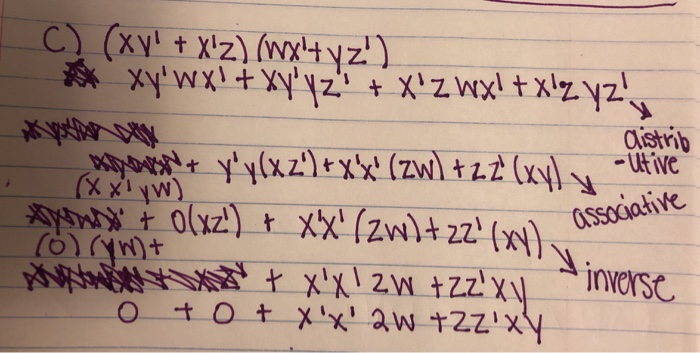 C) (xy' + x'z) (wx' + yz')
xy'wx' + xy'yz' + x'zwx' + x'zyz'
distrib
-utive
+ y'y(xz') + x'x'(zw) + zz'(xy)
(xx'yw)
associative
+ 0(xz') + x'x'(zw) + zz'(xy)
(0)(yw) +
inverse
+ x'x'zw + zz'xy
0 + 0 + x'x'zw + zz'xy